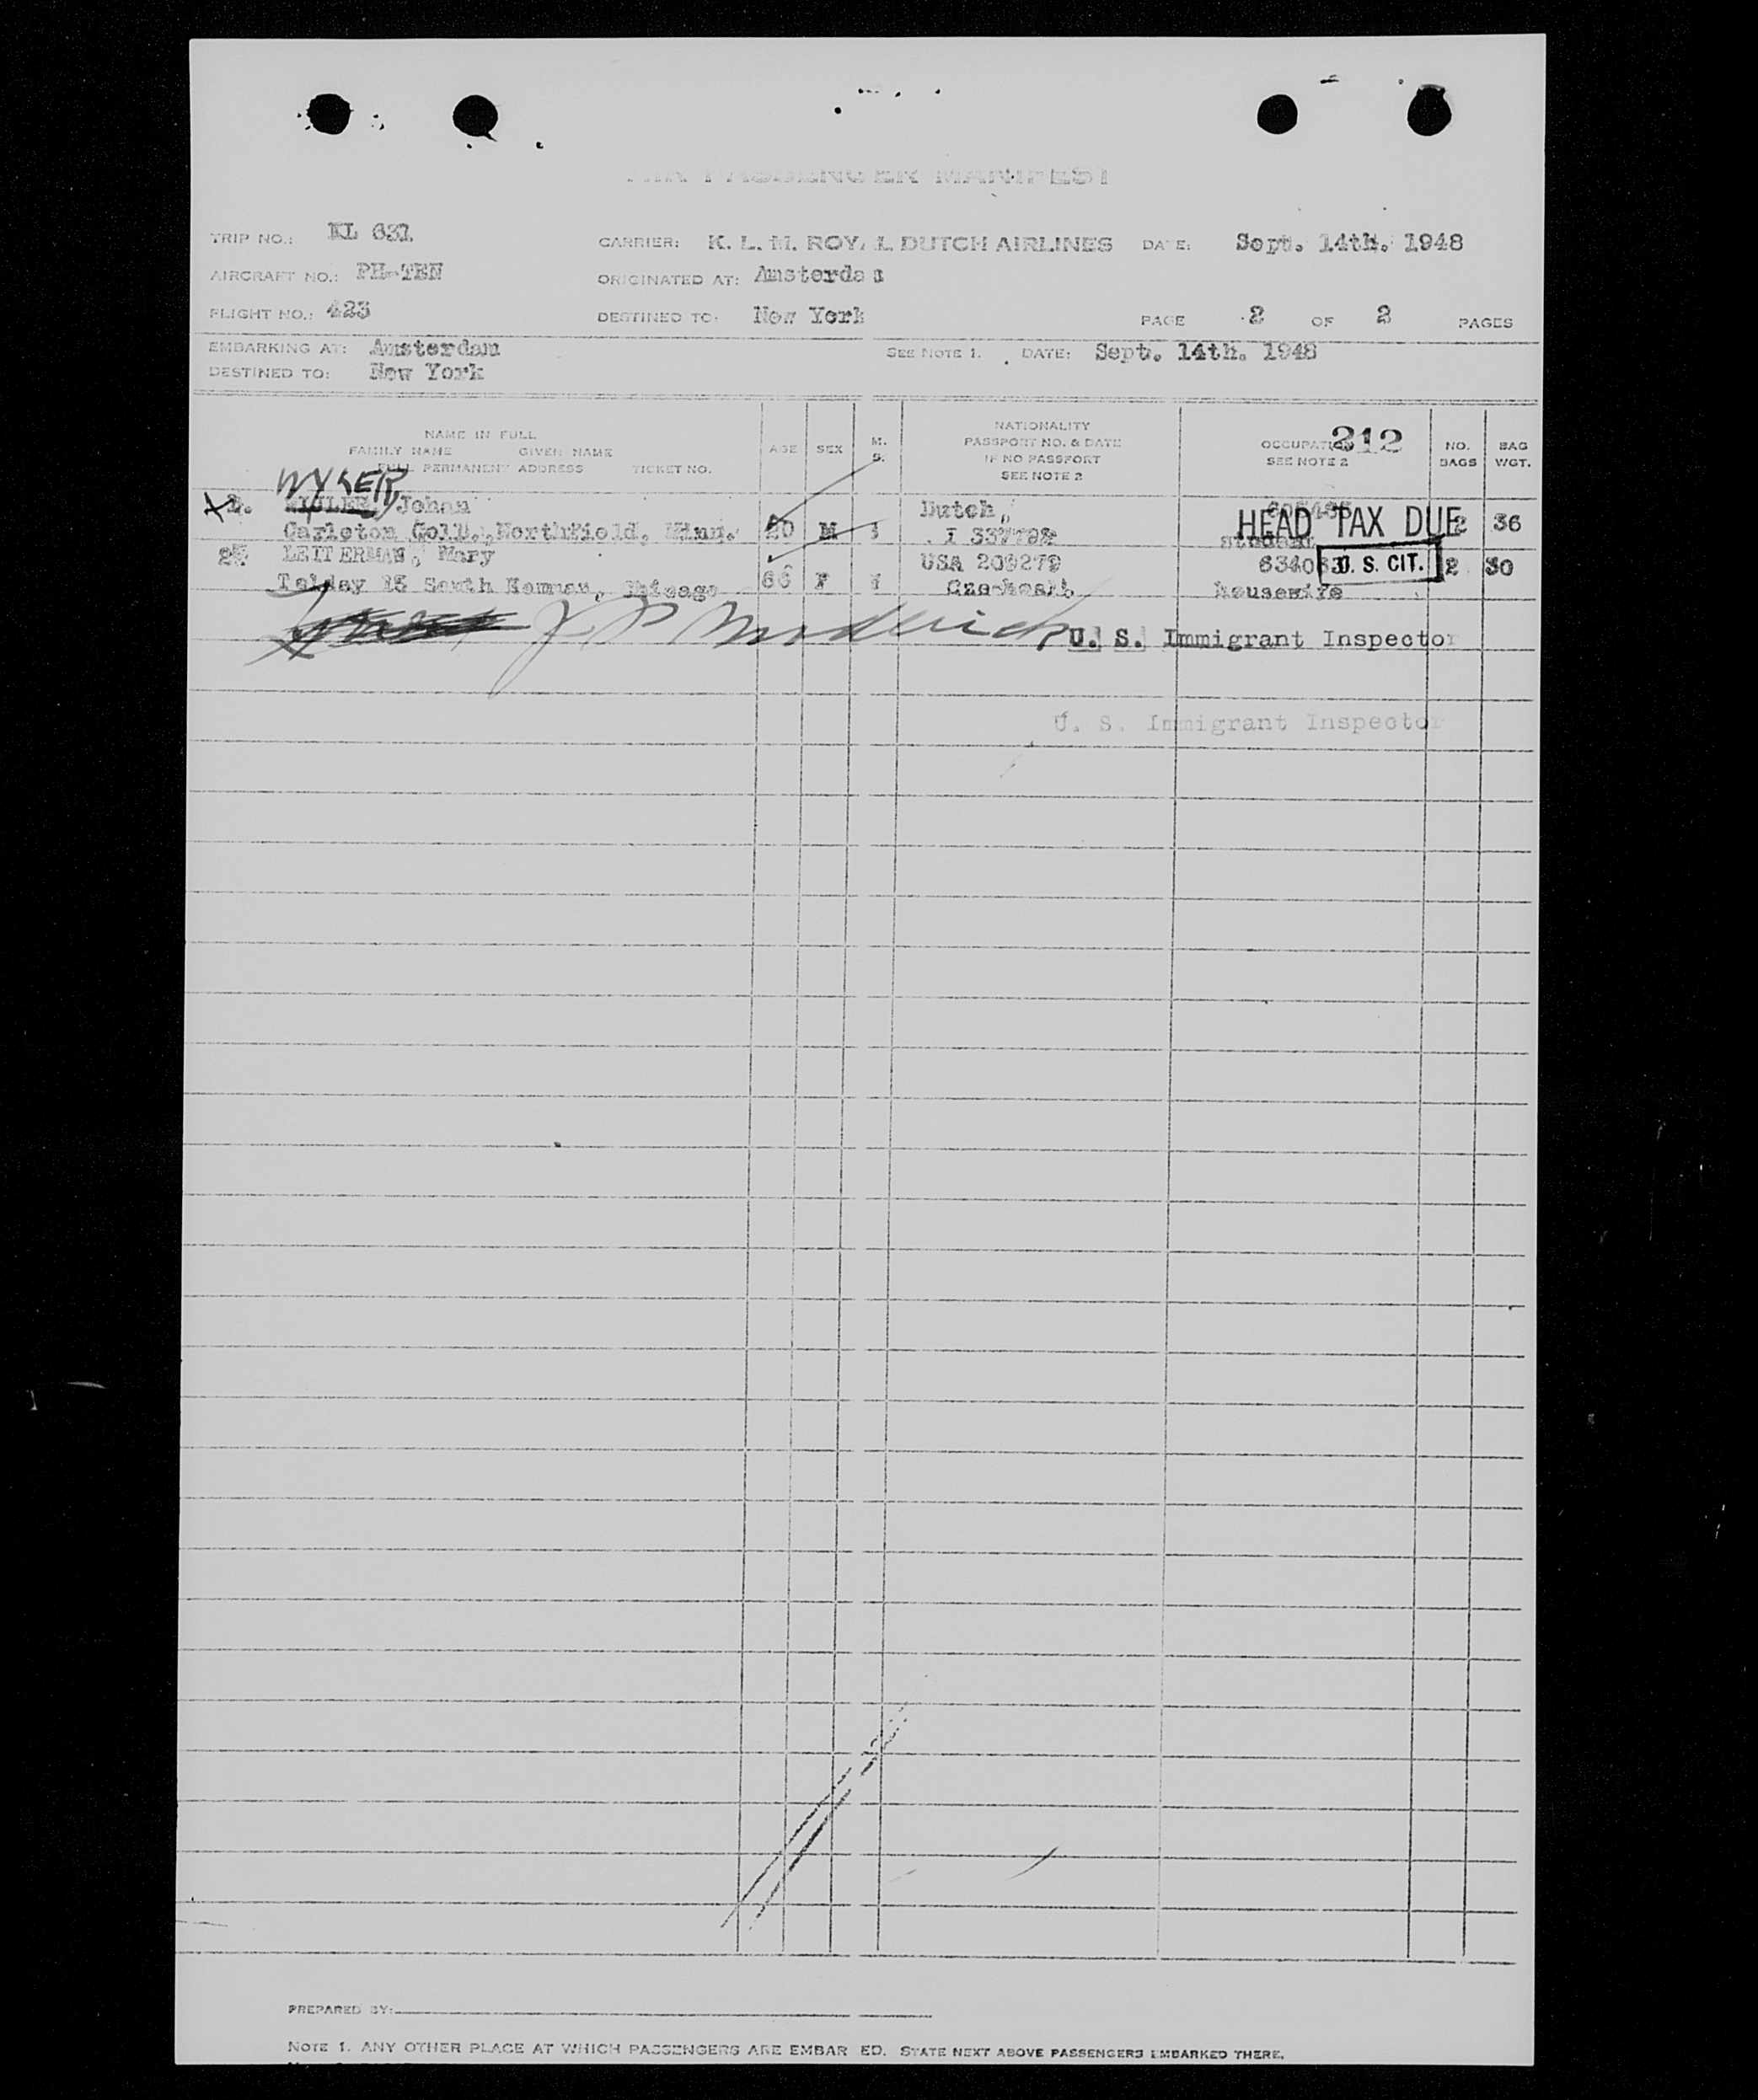 AIR PASSENGER MANIFEST
TRIP NO.: KL 631 CARRIER: K. L. M. ROYAL DUTCH AIRLINES DATE: Sept. 14th. 1948
AIRCRAFT NO.: PH-TEN ORIGINATED AT: Amsterdam
FLIGHT NO.: 423 DESTINED TO: New York PAGE 2 OF 2 PAGES
EMBARKING AT: Amsterdam SEE NOTE 1. DATE: Sept. 14th. 1948
DESTINED TO: New York
NAME IN FULL
FAMILY NAME GIVEN NAME
FULL PERMANENT ADDRESS TICKET NO.
AGE SEX M. S.
NATIONALITY
PASSPORT NO. & DATE
IF NO PASSPORT
SEE NOTE 2
OCCUPATION 212
SEE NOTE 2
NO. BAGS
BAG WGT.
WYSER,
1. Johan Dutch,
Carleton Coll., Northfield, Minn. 20 M HEAD TAX DUE 2 36
student
2. LEITERMAN, Mary USA 209279 U. S. CIT. 2 30
15 South Chicago 66 F housewife
U. S. Immigrant Inspector
U. S. Immigrant Inspector
PREPARED BY:
NOTE 1. ANY OTHER PLACE AT WHICH PASSENGERS ARE EMBAR ED. STATE NEXT ABOVE PASSENGERS EMBARKED THERE.